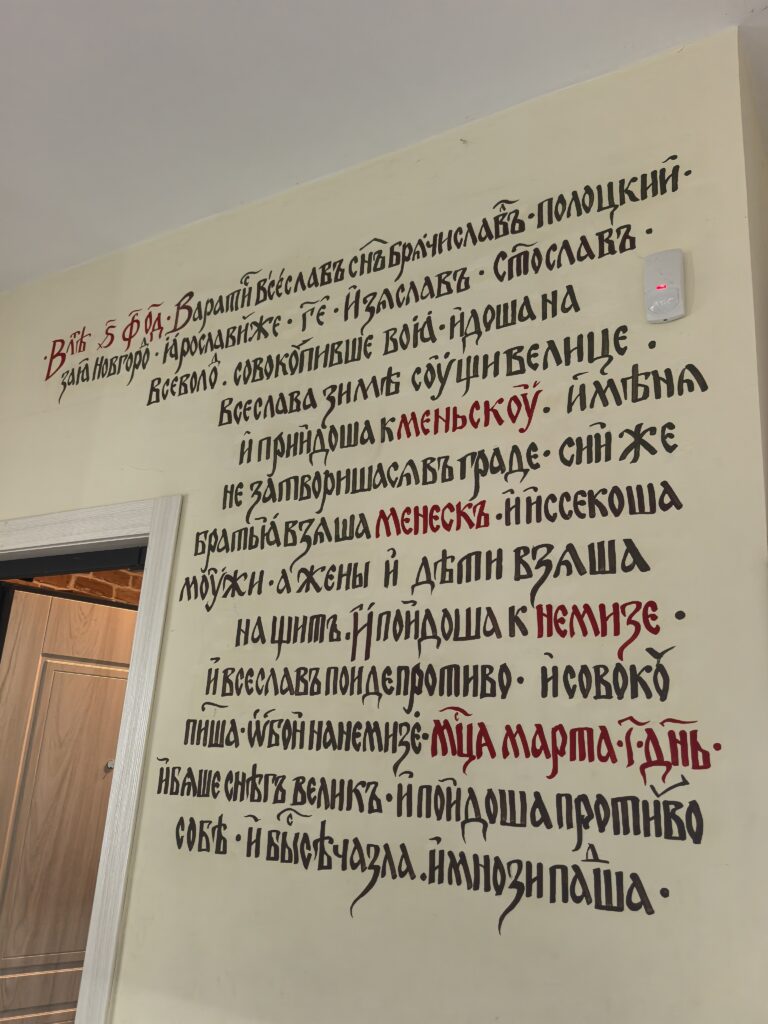 ·В лѣ҃ ѕ҃ ф҃ о҃д· Заратиⷭ҇ Всеславъ сн҃ъ брѧчиславⷧ҇ъ· полоцкий·
заꙗ новгороⷣ· ꙗрославиже· г҃е· Изѧславъ· Ст҃ославъ·
всеволоⷣ. совокопивше воꙗ· идоша на
всеслава зимѣ соущи велице .
и приидоша к меньскоу. и мѣнѧ
не затворишасѧ въ граде· сии же
братьꙗ взѧша менескъ· и иссекоша
моужи· а жены и дѣти взѧша
на щитъ. И поидоша к немизе·
и всеславъ поиде противо· и совокоу
пиша· ѡбои на немизе· мц҃а марта· г҃· дн҃ь·
и бѧше снѣгъ великъ· и поидоша противоу
собѣ· и быⷭ҇ сѣча зла. и мнози падⷣша·